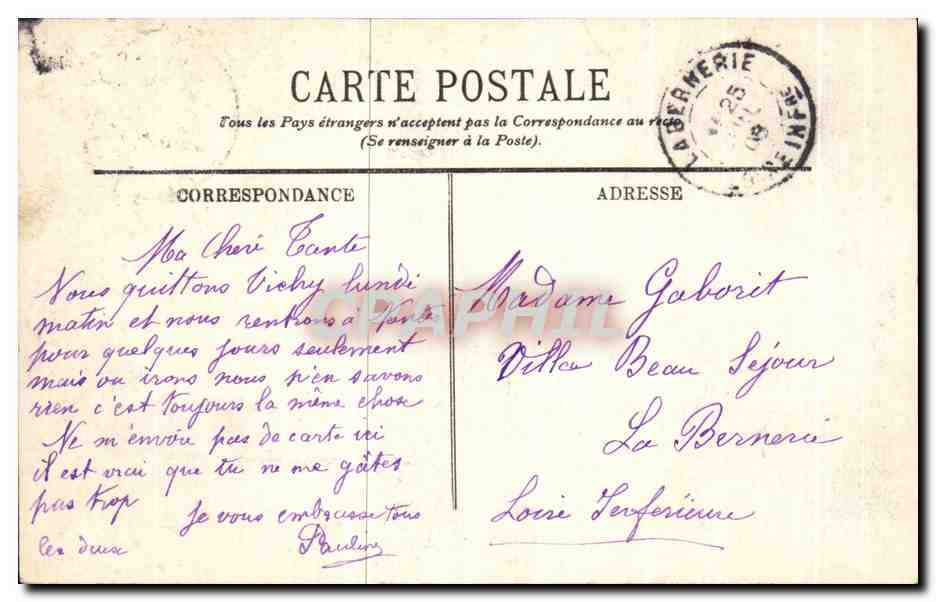 CARTE POSTALE
Tous les Pays étrangers n'acceptent pas la Correspondance au recto
(Se renseigner à la Poste).
LA BERNERIE
25
CORRESPONDANCE
Ma Chère Tante
Nous quittons Vichy lundi
matin et nous rentrons à Nantes
pour quelques jours seulement
mais ou irons nous n'en savons
rien c'est toujours la même chose
Ne m'envoie pas de carte ici
il est vrai que tu ne me gâtes
pas trop
Je vous embrasse tous
les deux
Pauline
ADRESSE
Madame Gaborit
Villa Beau Séjour
La Bernerie
Loire Inférieure
CPAPHIL